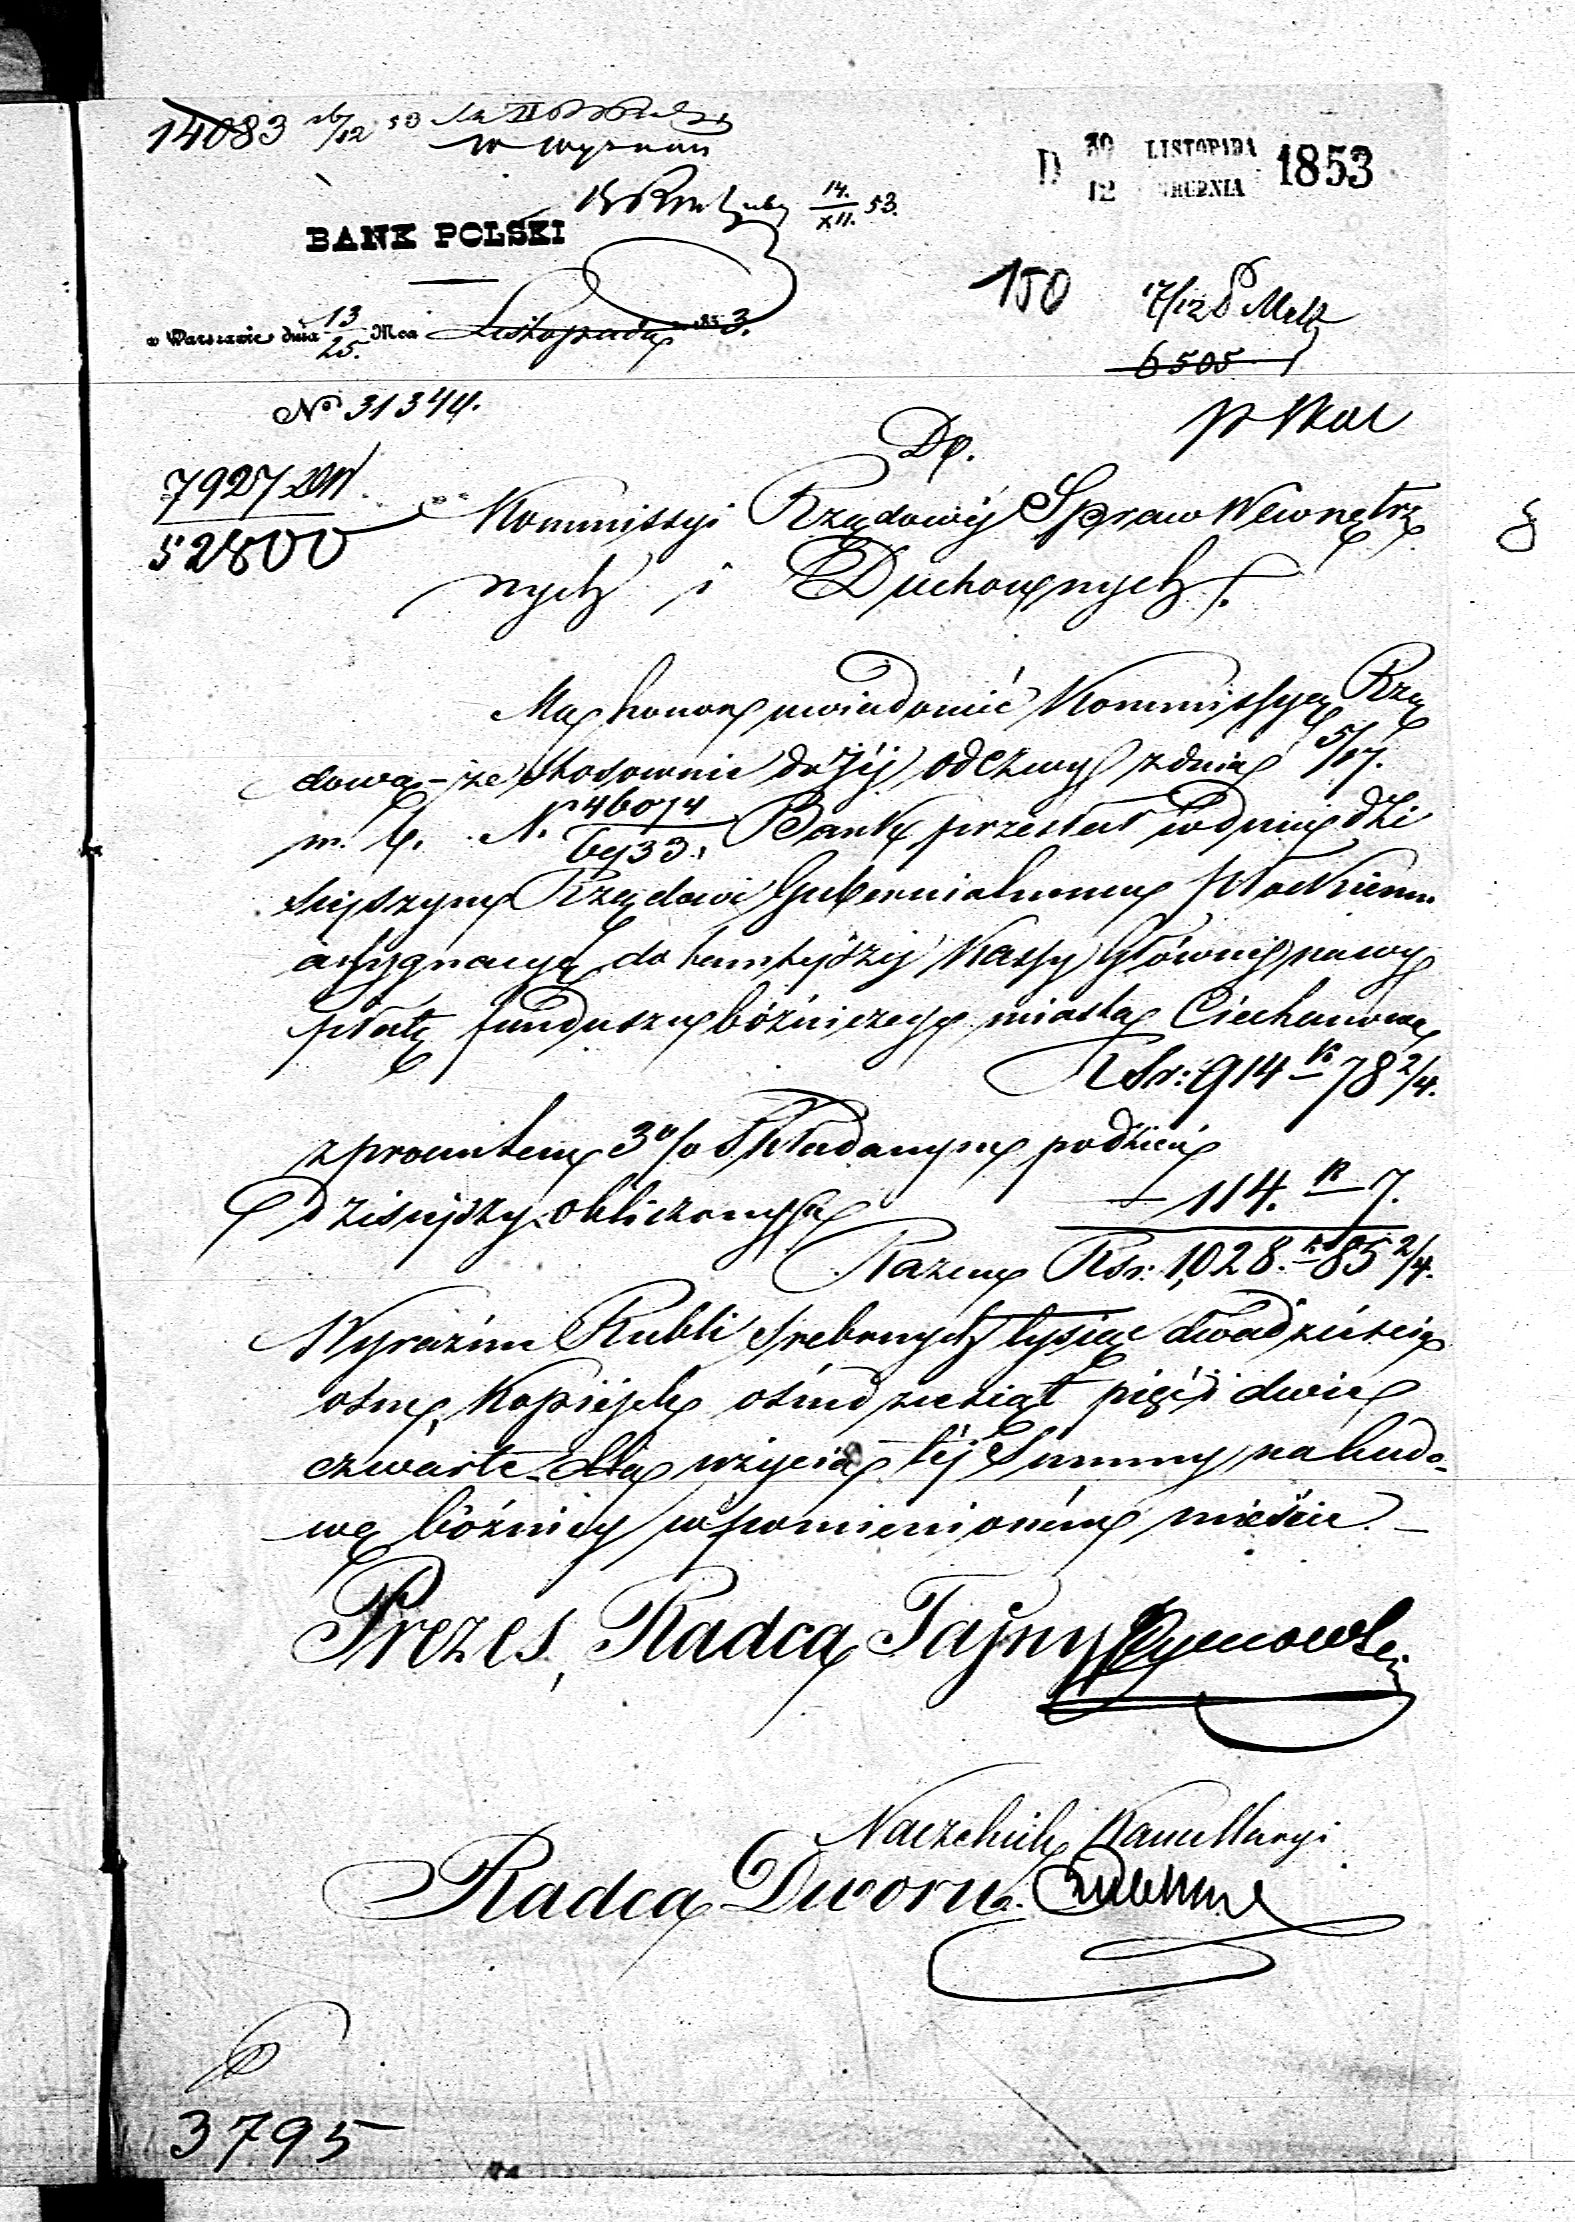 14083 16/12 53
w wyznan
14./XII. 53.
D 30/12 LISTOPADA/GRUDNIA 1853
BANK POLSKI
150
17/12
w Warszawie dnia 13/25. Mca Listopada 1853.
6505
No 31344.
Do.
7927
52800
Kommissyi Rządowéj Spraw Wewnętrz
nych i Duchownych.
Ma honor uwiadomić Kommissyą Rzą
dową – że stosownie do Jéj odezwy z dnia 5/17.
m. b. N. Bank przesłał w dniu dzi
siejszym Rządowi Gubernialnemu Płockiemu
assygnacyę do tamtejszéj Kassy Głównéj na wy
płatę funduszu bóżniczego miasta Ciechanowa
RSr: 914 k 78 2/4.
z procentem 3% składanym po dzień
dzisiejszy obliczonym
– 114. k 7.
Razem Rsr. 1,028. k 85 2/4.
Wyraźnie Rubli srebrnych tysiąc dwadzieścia
ośm, Kopiejek ośmdziesiąt pięć i dwie
czwarte – dla użycia téj Summy na budo-
wę bóżnicy w pomienioném mieście. –
Prezes, Radca Tajny Tymowski
Naczelnik Kancellaryi
Radca Dworu.
3795